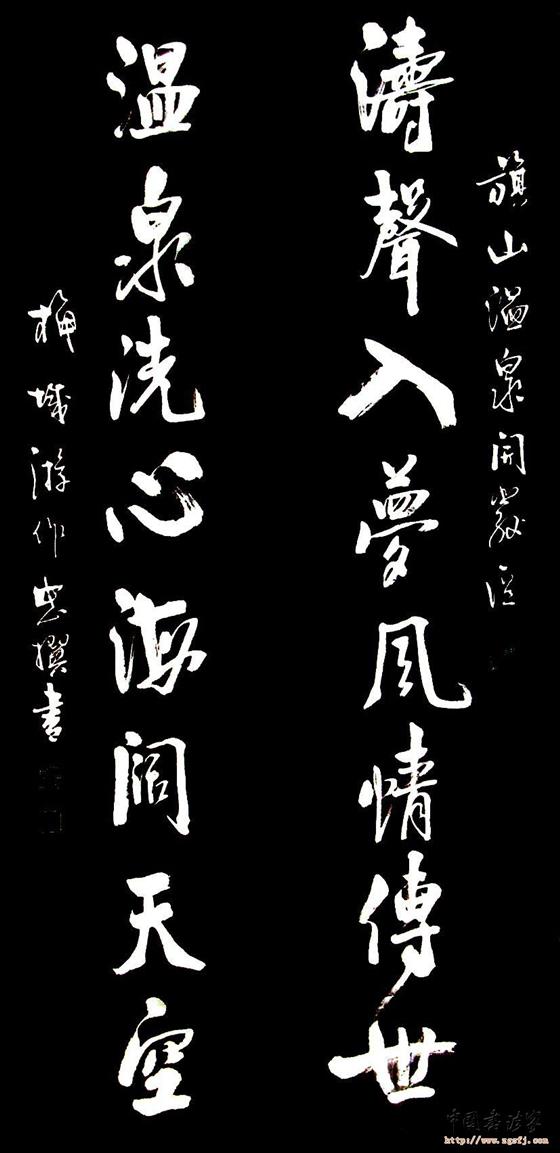 旗山温泉開發區
濤聲入夢風情傳世
温泉洗心海闊天空
城游作忠撰書
中国书法家
http://www.zgsfj.com